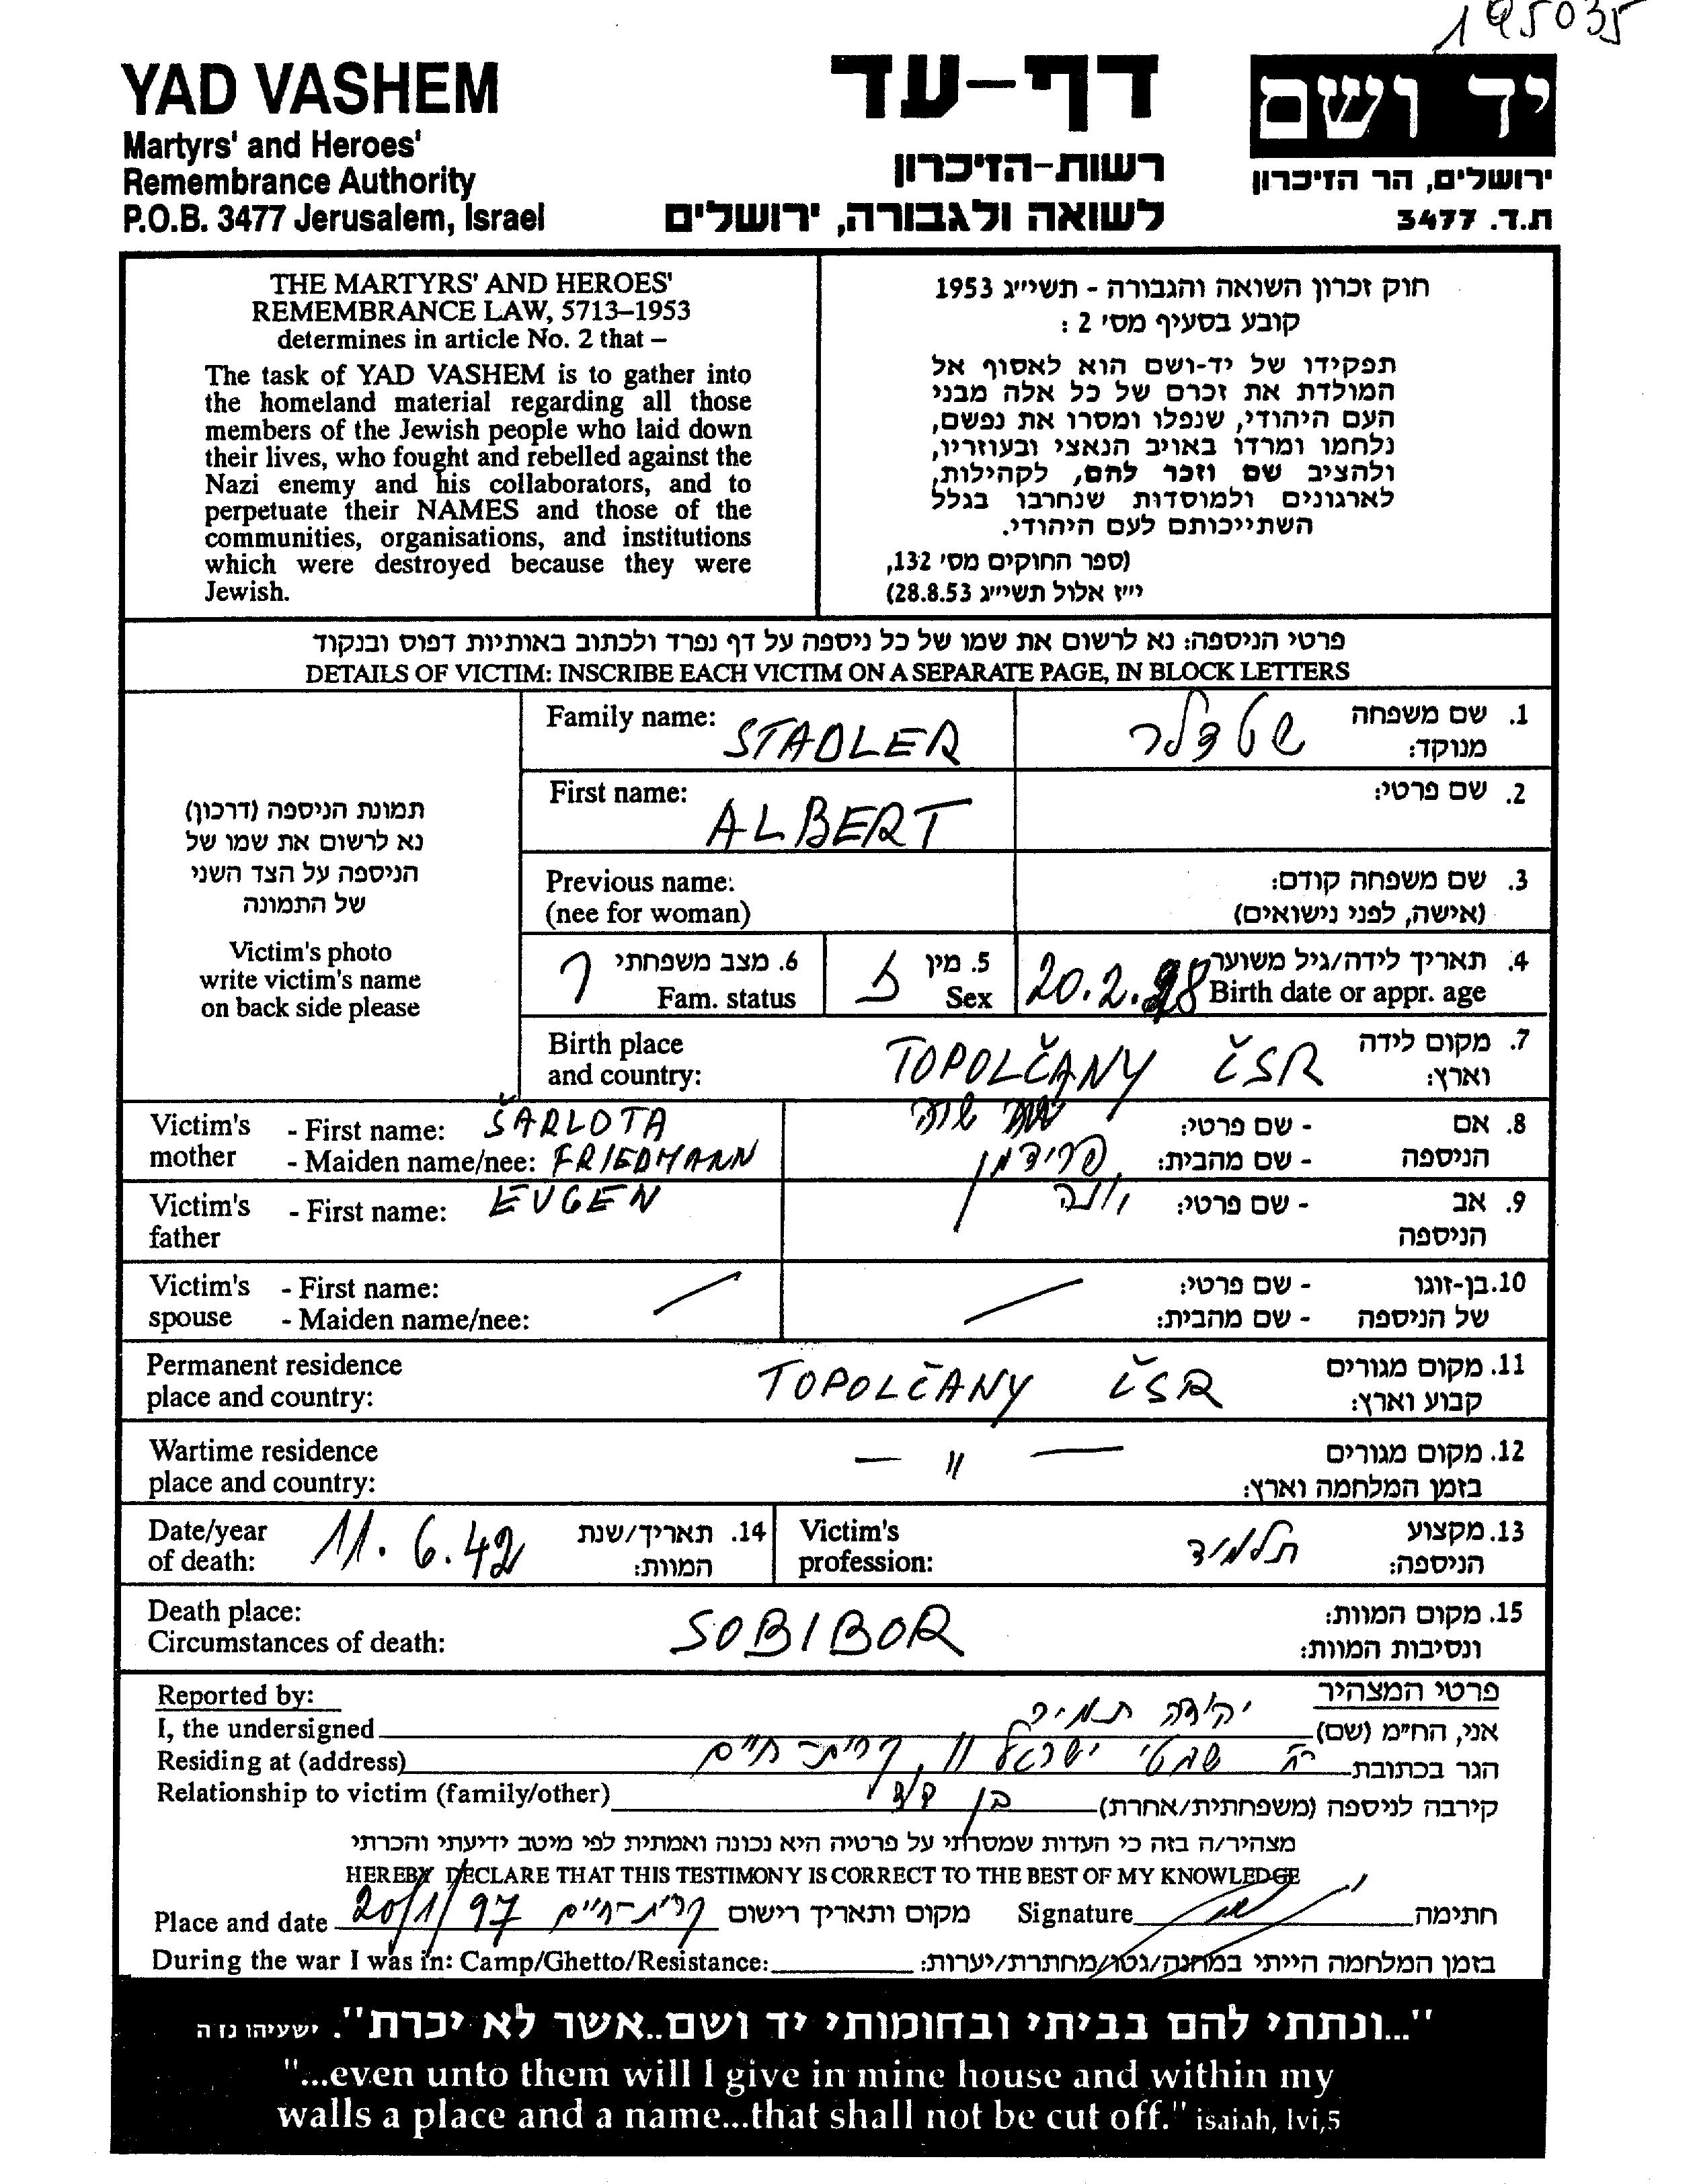 195035
YAD VASHEM
Martyrs' and Heroes'
Remembrance Authority
P.O.B. 3477 Jerusalem, Israel
דף-עד
רשות-הזיכרון
לשואה ולגבורה, ירושלים
יד ושם
ירושלים, הר הזיכרון
ת.ד. 3477
THE MARTYRS' AND HEROES'
REMEMBRANCE LAW, 5713–1953
determines in article No. 2 that –
The task of YAD VASHEM is to gather into
the homeland material regarding all those
members of the Jewish people who laid down
their lives, who fought and rebelled against the
Nazi enemy and his collaborators, and to
perpetuate their NAMES and those of the
communities, organisations, and institutions
which were destroyed because they were
Jewish.
חוק זכרון השואה והגבורה - תשי״ג 1953
קובע בסעיף מס׳ 2 :
תפקידו של יד-ושם הוא לאסוף אל
המולדת את זכרם של כל אלה מבני
העם היהודי, שנפלו ומסרו את נפשם,
נלחמו ומרדו באויב הנאצי ובעוזריו,
ולהציב שם וזכר להם, לקהילות,
לארגונים ולמוסדות שנחרבו בגלל
השתייכותם לעם היהודי.
(ספר החוקים מס׳ 132,
י״ז אלול תשי״ג 28.8.53)
פרטי הניספה: נא לרשום את שמו של כל ניספה על דף נפרד ולכתוב באותיות דפוס ובנקוד
DETAILS OF VICTIM: INSCRIBE EACH VICTIM ON A SEPARATE PAGE, IN BLOCK LETTERS
תמונת הניספה (דרכון)
נא לרשום את שמו של
הניספה על הצד השני
של התמונה
Victim's photo
write victim's name
on back side please
Family name: STADLER
1. שם משפחה מנוקד: שטדלר
First name: ALBERT
2. שם פרטי:
Previous name:
(nee for woman)
3. שם משפחה קודם:
(אישה, לפני נישואים)
6. מצב משפחתי ר
Fam. status
5. מין ז
Sex
4. תאריך לידה/גיל משוער
Birth date or appr. age 20.2.28
Birth place
and country: TOPOLČANY ČSR
7. מקום לידה
וארץ:
Victim's mother - First name: ŠARLOTA
- Maiden name/nee: FRIEDMANN
8. אם הניספה - שם פרטי: שרה
- שם מהבית: פרידמן
Victim's father - First name: EUGEN
9. אב הניספה - שם פרטי:
Victim's spouse - First name:
- Maiden name/nee:
10. בן-זוגו של הניספה - שם פרטי:
- שם מהבית:
Permanent residence
place and country: TOPOLČANY ČSR
11. מקום מגורים
קבוע וארץ:
Wartime residence
place and country: — " —
12. מקום מגורים
בזמן המלחמה וארץ:
Date/year
of death: 11.6.42
14. תאריך/שנת
המוות:
Victim's
profession: תלמיד
13. מקצוע
הניספה:
Death place:
Circumstances of death: SOBIBOR
15. מקום המוות:
ונסיבות המוות:
Reported by:
פרטי המצהיר
I, the undersigned יהודה תמיר אני, הח״מ (שם)
Residing at (address) שבטי ישראל 11, קרית-חיים הגר בכתובת
Relationship to victim (family/other) בן דוד קירבה לניספה (משפחתית/אחרת)
מצהיר/ה בזה כי העדות שמסרתי על פרטיה היא נכונה ואמתית לפי מיטב ידיעתי והכרתי
HEREBY DECLARE THAT THIS TESTIMONY IS CORRECT TO THE BEST OF MY KNOWLEDGE
Place and date 20/1/97 קרית-חיים מקום ותאריך רישום Signature חתימה
During the war I was in: Camp/Ghetto/Resistance: בזמן המלחמה הייתי במחנה/גטו/מחתרת/יערות:
"...ונתתי להם בביתי ובחומותי יד ושם..אשר לא יכרת". ישעיהו נו ה
"...even unto them will I give in mine house and within my
walls a place and a name...that shall not be cut off." isaiah, lvi,5